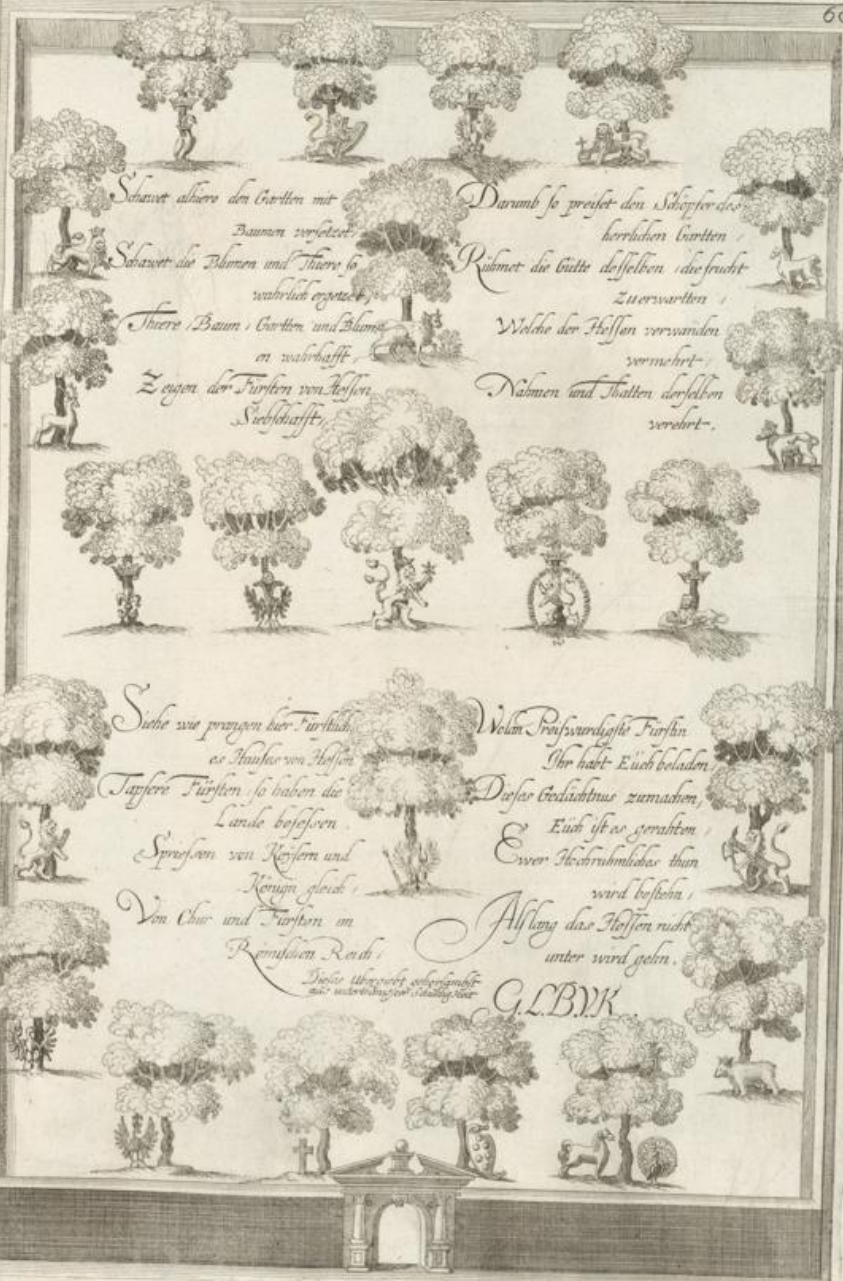 60
Schawet alhiero den Gartten mit
Baumen versetzet,
Schawet die Blumen und Thiere so
wahrlich ergetzet,
Thiere, Baum, Gartten und Blum
en wahrhafft,
Zeigen der Fursten von Hessen
Siebschafft,
Darumb so preiset den Schöpfer des
herrlichen Gartten,
Rühmet die Gütte desselben, die frucht
zuerwartten,
Welche der Hessen verwanden
vermehrt,
Nahmen und Thatten derselben
verehrt.
Siehe wie prangen hier Fürstlich
es Hauses von Hessen
Tapfere Fürsten, so haben die
Lande besessen.
Spriessen von Keysern und
Könign gleich,
Von Chur und Fürsten im
Römischen Reich,
Wolan Preiswurdigste Fürstin
Ihr habt Euch beladen,
Dieses Gedächtnus zumachen,
Euch ist es gerahten,
Ewer Hochrühmliches thun
wird bestehn,
Alslang das Hessen nicht
unter wird gehn.
Dieses ubergiebt gehorsambst
aus unterthäniger Schuldigkeit
G.L.B.V.K.